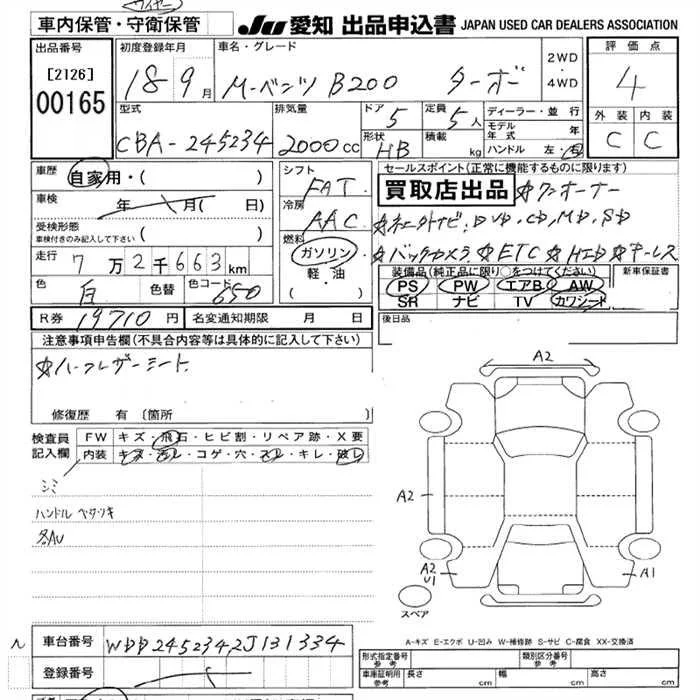 車内保管・守衛保管
JU 愛知 出品申込書 JAPAN USED CAR DEALERS ASSOCIATION
出品番号 初度登録年月 車名・グレード 評価点
[2126]
00165
18 9月 M・ベンツ B200 ターボ 2WD 4WD 4
型式 排気量 ドア 定員 ディーラー・並行 外装 内装
CBA-245234 2000cc 5 5人 モデル年式 年 C C
形状 HB 積載 kg ハンドル 左・右
車歴 自家用・( ) シフト FAT セールスポイント(正常に機能するものに限ります)
買取店出品 ☆ワンオーナー
車検 年 月( 日) 冷房 AAC ☆純正ナビ、DVD、CD、MD、SD
受検形態 車検付きのみ記入して下さい 燃料 ガソリン 軽・油 ☆バックカメラ ☆ETC ☆HID ☆キーレス
走行 7万2千663km
装備品(純正品に限り○をつけてください) 新車保証書
色 白 色替 色コード 650
PS PW エアB AW
SR ナビ TV カワシート
R券 19710円 名変通知期限 月 日
後日品
注意事項申告欄(不具合内容等は具体的に記入して下さい)
☆ハーフレザーシート
修復歴 有 〔箇所 〕
検査員記入欄 FW キズ・飛石・ヒビ割・リペア跡・X要
内装 キズ・汚レ・コゲ・穴・スレ・キレ・破レ
シミ
ハンドル ベタツキ
各AU
A2
A2
A2
U1
A1
スペア
A-キズ E-エクボ U-凹み W-補修跡 S-サビ C-腐食 XX-交換済
車台番号 WDD2452342J131334
登録番号
形式指定番号 参考 類別区分番号 参考
車庫証明用 参考 長さ cm 幅 cm 高さ cm